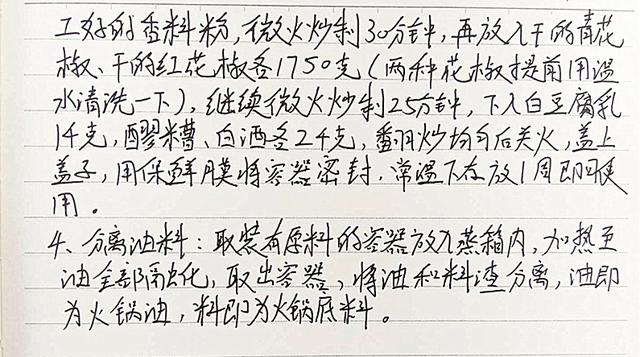 工好的香料粉，微火炒制30分钟，再放入干的青花
椒、干的红花椒各1750克（两种花椒提前用温
水清洗一下），继续微火炒制25分钟，下入白豆腐乳
1千克，醪糟、白酒各2千克，翻炒均匀后关火，盖上
盖子，用保鲜膜将容器密封，常温下存放1周即可使
用。
4、分离油料：取装有原料的容器放入蒸箱内，加热至
油全部融化，取出容器，将油和料渣分离，油即
为火锅油，料即为火锅底料。